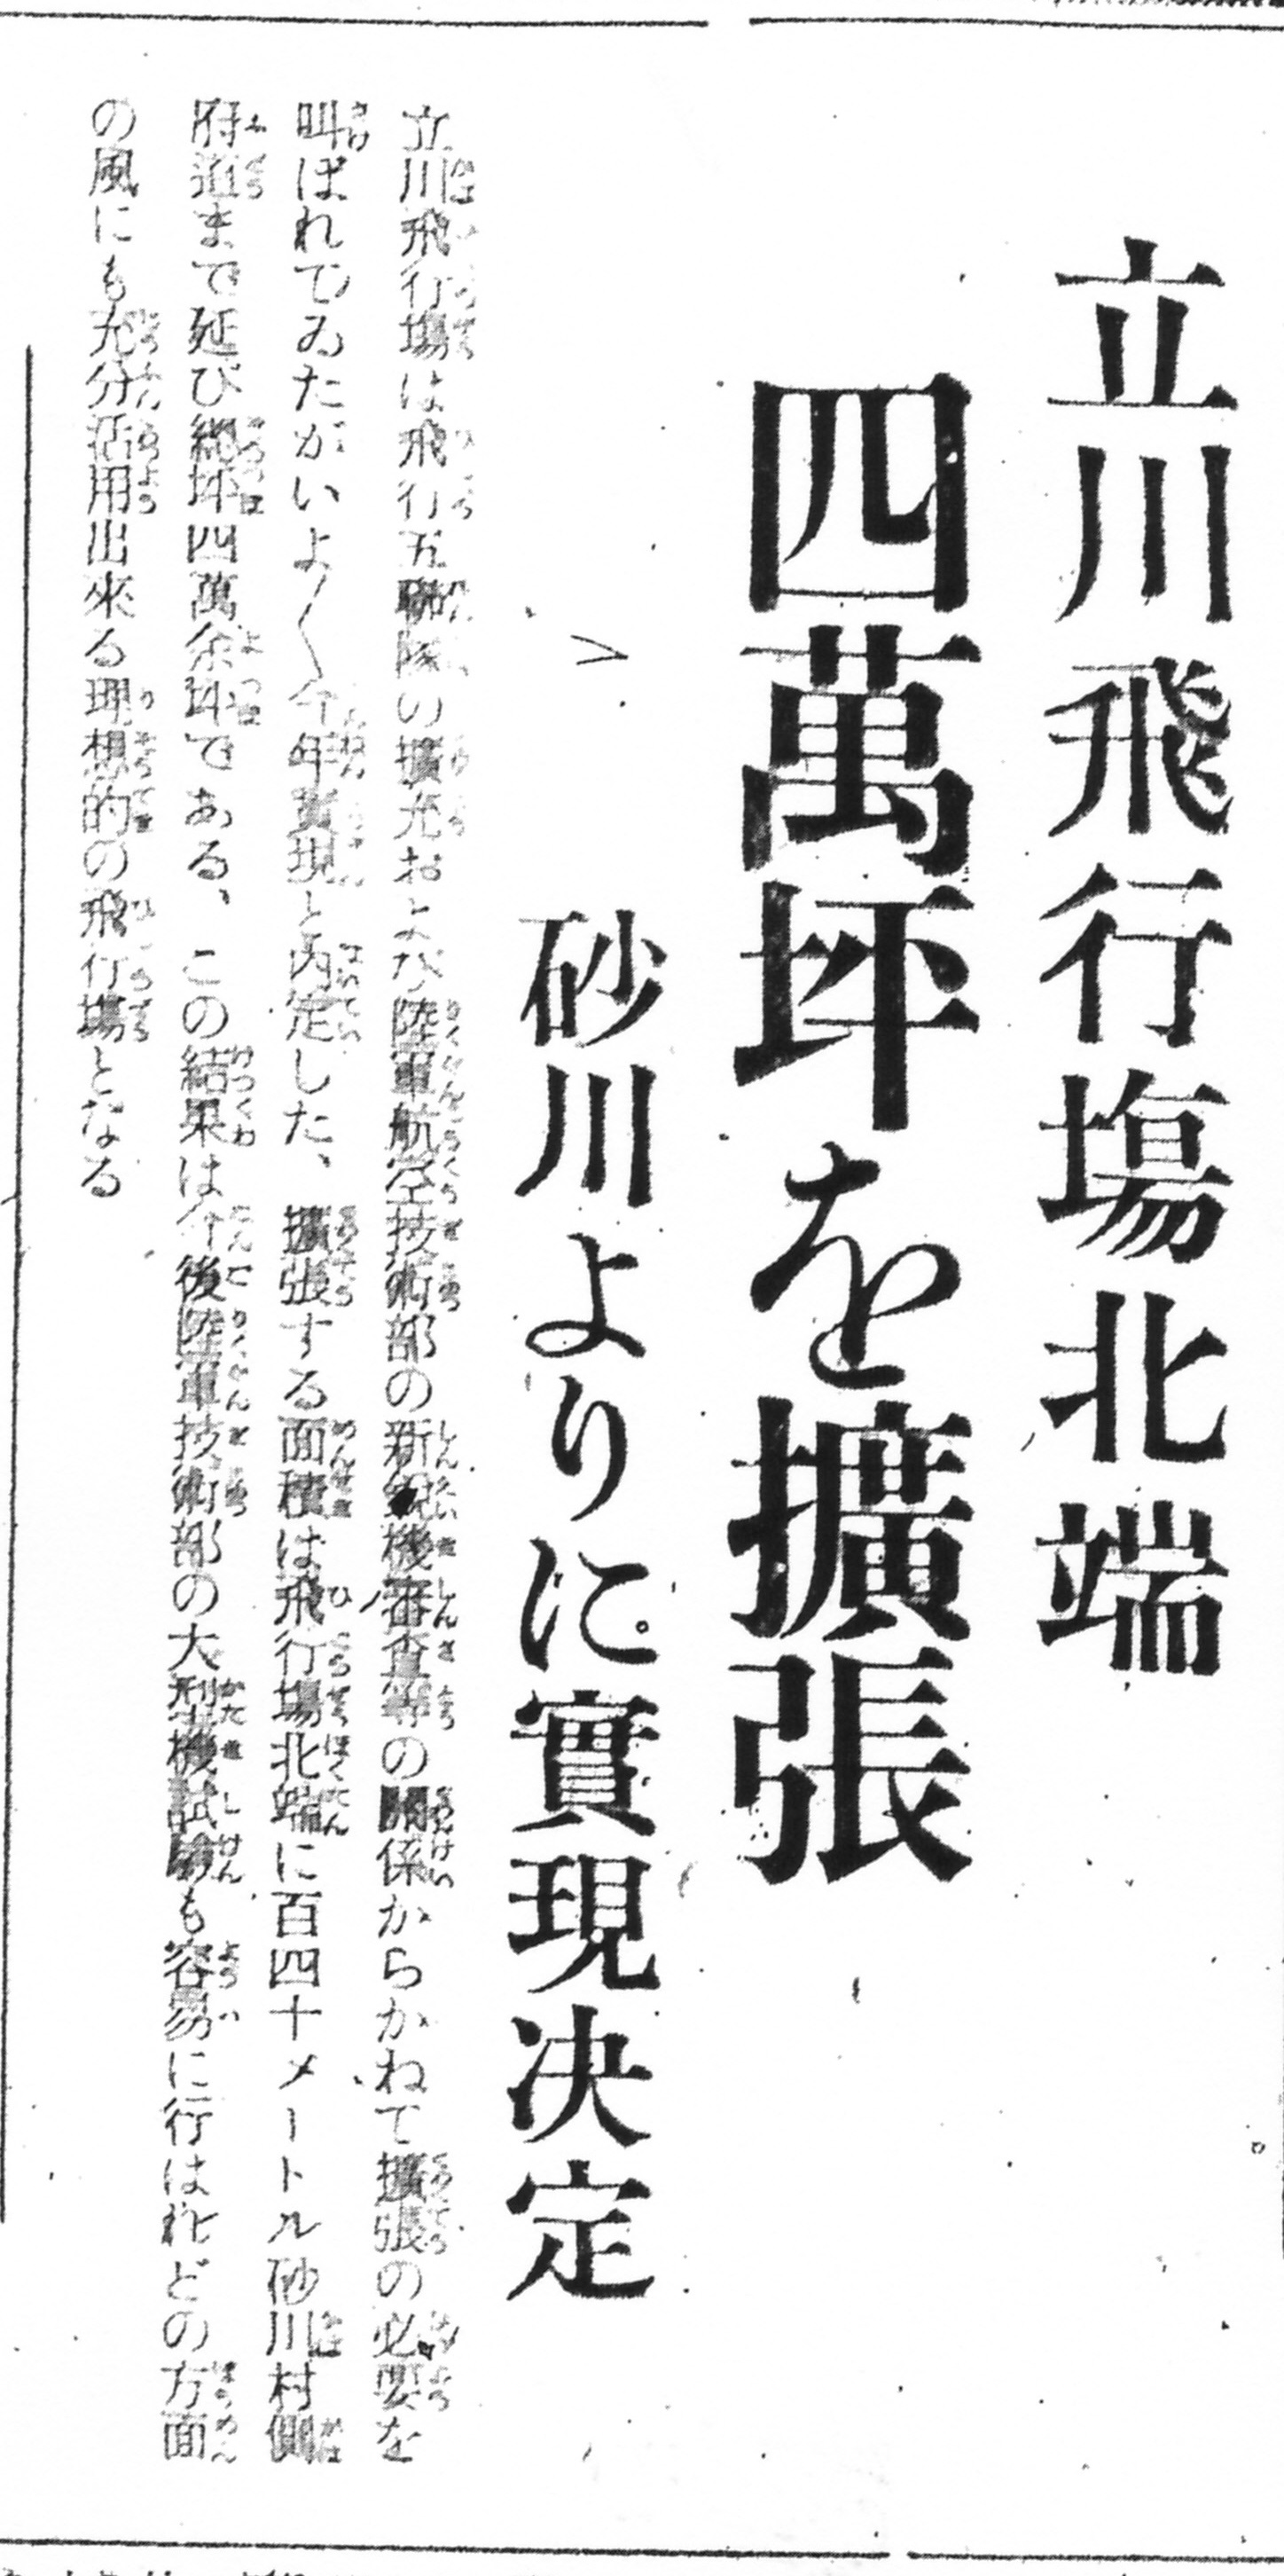 立川飛行場北端
四萬坪を擴張
砂川よりに實現决定
立川飛行場は飛行五聯隊の擴充および陸軍航空技術部の新鋭機審査等の關係からかねて擴張の必要を
叫ばれてゐたがいよ〱今年實現と內定した、擴張する面積は飛行場北端に百四十メートル砂川村側
府道まで延び總坪四萬余坪である、この結果は今後陸軍技術部の大型機試驗も容易に行はれどの方面
の風にも充分活用出來る理想的の飛行場となる